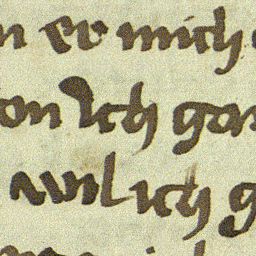 n er mich
on Ich gar
wil ich g